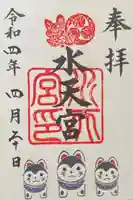 奉拝
水天宮
令和四年四月二十日